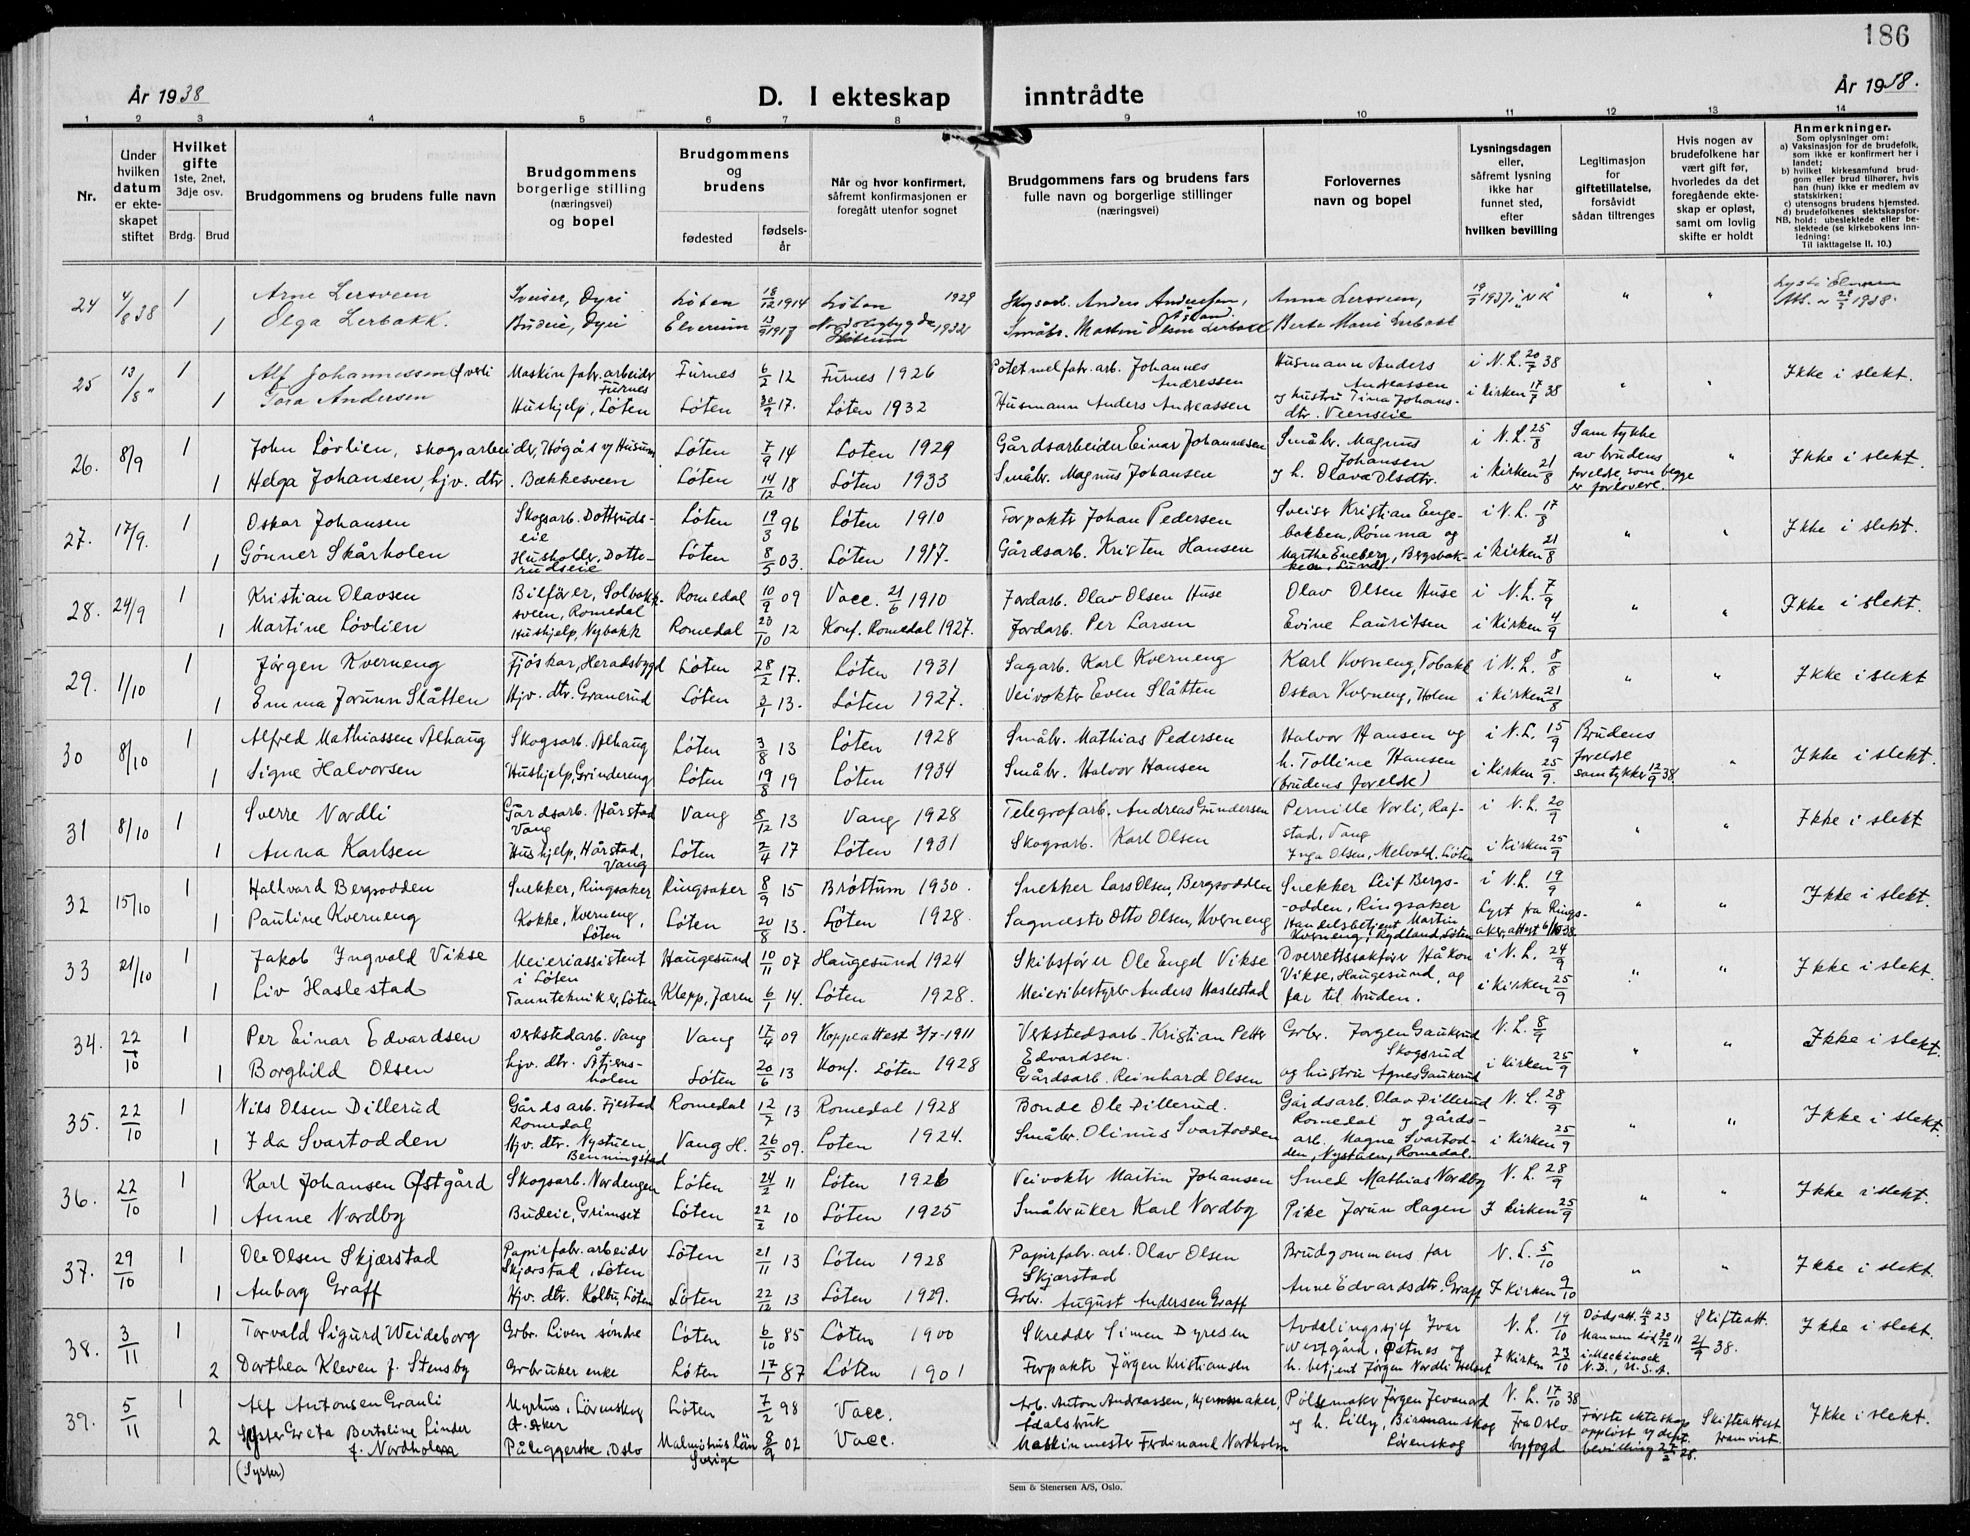 186
År 1938
D. I ekteskap inntrådte
År 1938.
1 2 3 4 5 6 7 8 9 10 11 12 13 14
Nr.
Under hvilken datum er ekteskapet stiftet
Hvilket gifte 1ste, 2net, 3dje osv.
Brdg. Brud
Brudgommens og brudens fulle navn
Brudgommens borgerlige stilling (næringsvei) og bopel
Brudgommens og brudens
fødested
fødselsår
Når og hvor konfirmert, såfremt konfirmasjonen er foregått utenfor sognet
Brudgommens fars og brudens fars fulle navn og borgerlige stillinger (næringsvei)
Forlovernes navn og bopel
Lysningsdagen eller, såfremt lysning ikke har funnet sted, efter hvilken bevilling
Legitimasjon for giftetillatelse, forsåvidt sådan tiltrenges
Hvis nogen av brudefolkene har vært gift før, hvorledes da det foregående ekteskap er opløst, samt om lovlig skifte er holdt
Anmerkninger.
Som oplysninger om:
a) Vaksinasjon for de brudefolk, som ikke er konfirmert her i landet;
b) hvilket kirkesamfund brudgom eller brud tilhører, hvis han (hun) ikke er medlem av statskirken;
c) utensogns brudens hjemsted.
d) brudefolkenes slektskapsforhold: ubeslektede eller beslektede (se kirkebokens innledning:
NB.
Til iakttagelse II. 10.)
24 4/8 38 1 Arne Lersveen Sveiser, Dyri Løten 18/12 1914 Løten 1929 Skogsarb. Anders Andersen, Anna Lersveen, 19/7 1937 i "N K" " "
1 Olga Lerbakk. Budeie, Dyri Elverum 13/9 1917 1932 Småbr. Martin Olsen Lerbakk Berte Marie Lerbakk
25 13/8 " 1 Alf Johannessen Øverli Maskinfabr. arbeider Furnes Furnes 6/2 12 Furnes 1926 Potetmelfabr. arb. Johannes Andressen Husmann Anders Andreassen i N.L. 20/7 38 " " Ikke i slekt.
1 Tora Andersen Hushjelp, Løten Løten 30/9 17. Løten 1932 Husmann Anders Andreassen og hustru Tina Johansdtr. Veenseie i Kirken 17/7 38
26. 8/9 1 John Løvlien, skogsarbeider, Høgås v/ Husum Løten 7/9 14 Løten 1929 Gårdsarbeider Einar Johannesen Småbr. Magnus Johansen i N.L. 25/8 Samtykke av brudens forelde, som begge er forlovere. " Ikke i slekt.
1 Helga Johansen, hjv. dtr. Bækkesveen Løten 14/12 18 Løten 1933 Småbr. Magnus Johansen og h. Olava Olsdtr. i Kirken 21/8
27. 17/9. 1 Oskar Johansen Skogsarb. Dotterudseie Løten 19/3 96 Løten 1910 Forpakter Johan Pedersen Sveiser Kristian Engebakken, Rømma og i N.L. 17/8 " " Ikke i slekt.
1 Gønner Skårholen Husholder, Dotterudseie Løten 8/5 03. Løten 1917. Gårdsarb. Kristen Hansen Marthe Eneberg, Bergsbakken, Lund i Kirken 21/8
28. 24/9 1 Kristian Olavsen Bilfører, Solbakksveen, Romedal Romedal 10/9 09 Vacc. 21/6 1910 Jordarb. Olav Olsen Huse Olav Olsen Huse i N.L. 7/9 " " Ikke i slekt.
1 Martine Løvlien Hushjelp, Nybakk Romedal 23/10 12 Konf. Romedal 1927. Jordarb. Per Larsen Evine Lauritsen i Kirken 4/9
29. 1/10 1 Jørgen Kverneng Fjøskar, Heradsbygd Løten 28/2 17. Løten 1931 Sagarb. Karl Kverneng Karl Kverneng, Tobakk i N.L. 8/8 " " Ikke i slekt
1 Emma Jorunn Slåtten Hjv. dtr. Granerud Løten 3/1 13. Løten 1927. Veivokter Even Slåtten Oskar Kverneng, Holen i Kirken 21/8
30 8/10 1 Alfred Mathiassen Alhaug Skogsarb. Alhaug Løten 3/8 13 Løten 1928 Småbr. Mathias Pedersen Halvor Hansen og i N.L. 15/9 Brudens forelde samtykker 12/9 38. " Ikke i slekt.
1 Signe Halvorsen Hushjelp, Grindereng Løten 19/8 19 Løten 1934 Småbr. Halvor Hansen h. Tolline Hansen (brudens forelde) i Kirken 25/9.
31 8/10 1 Sverre Nordli Gårdsarb. Hårstad Vang Vang 8/12 13 Vang 1928 Telegrafarb. Andreas Gundersen Pernille Norli, Rafstad, Vang i N.L. 20/9 " " Ikke i slekt
1 Anna Karlsen Hushjelp, Hårstad, Vang Løten 2/4 17 Løten 1931 Skogsarb. Karl Olsen Inga Olsen, Melvold. Løten i Kirken 25/9
32 15/10 1 Hallvard Bergsodden Snekker, Ringsaker Ringsaker 8/9 15 Brøttum 1930. Snekker Lars Olsen, Bergsodden Snekker Leif Bergsodden, Ringsaker i N.L. 19/9 " " Ikke i slekt.
1 Pauline Kverneng Kokke, Kverneng, Løten Løten 20/8 13. Løten 1928. Sagmester Otto Olsen, Kverneng Handelsbetjent Martin Kverneng, Rydland, Løten Lyst fra Ringsaker, attest 6/10 38
33 21/10 1 Jakob Ingvald Vikse Meieriassistent i Løten Haugesund 10/11 07 Haugesund 1924 Skibsfører Ole Engel Vikse Overrettssakfører Håkon i N.L. 24/9 " " Ikke i slekt.
1 Liv Haslestad Tanntekniker, Løten Klepp, Jæren 6/1 14. Løten 1928. Meieribestyrer Anders Haslestad Vikse, Haugesund, og far til bruden. i Kirken 25/9
34. 22/10 1 Per Einar Edvardsen Verkstedarb. Vang Vang 17/4 09 Koppeattest 3/7-1911 Verkstedsarb. Kristian Petter Edvardsen. Grbr. Jørgen Gaukerud Skogsrud N.L. 8/9 " " Ikke i slekt.
1 Borghild Olsen hjv. dtr. Åtjernsholen Løten 20/6 13 Konf. Løten 1928 Gårdsarb. Reinhard Olsen og hustru Agnes Gaukerud i Kirken 25/9
35. 22/10 1 Nils Olsen Dillerud Gårdsarb. Fjestad Romedal Romedal 12/7 13 Romedal 1928 Bonde Ole Dillerud. Gårdsarb. Olav Dillerud N.L. 28/9 " " Ikke i slekt.
1 Ida Svartodden Hjv. dtr. Nystuen, Benningstad Vang H. 26/5 09. Løten 1924. Småbr. Olinus Svartodden Romedal og gårdsarb. Magne Svartodden, Nystuen, Romedal. i Kirken 25/9
36. 22/10 1 Karl Johansen Østgård Skogsarb. Nordengen Løten 24/2 11 Løten 1926 Veivokter Martin Johansen Smed Mathias Nordby N.L. 28/9 " " Ikke i slekt.
1 Anne Nordby Budeie, Grimset Løten 22/2 10 Løten 1925 Småbruker Karl Nordby Pike Jorun Hagen I Kirken 25/9
37. 29/10 1 Ole Olsen Skjærstad Papirfabr. arbeider Skjærstad, Løten Løten 21/11 13 Løten 1928 Papirfabr. arb. Olav Olsen Skjærstad Brudgommens far N.L. 5/10 " " Ikke i slekt.
1 Anborg Graff Hjv. dtr. Kolbu, Løten Løten 22/12 13 Løten 1929. Grbr. August Andersen Graff Anne Edvardsdtr. Graff I Kirken 9/10
38. 3/11 1 Torvald Sigurd Weideborg Grbr. Liven søndre Løten 6/10 85 Løten 1900 Skredder Simen Dyresen Avdelingssjef Ivar Westgård, Østnes og N.L. 19/10 Dødsatt. 6/2 23 Mannen død 30/12 11 i Meckinock N.D., U.S.A. Skifteatt. 21/9 38. Ikke i slekt.
2 Dorthea Kleven f. Stensby Grbruker enke Løten 17/1 87 Løten 1901 Forpakter Jørgen Kristiansen h. betjent Jørgen Nordli I Kirken 23/10
39. 5/11 1 Alf Antonsen Granli Myrhus, Lørenskog Løten 7/2 98 Vacc. Arb. Anton Andreassen, Hjermsmaker, Ådalsbruk Pølsemaker Jørgen Jevanord N.L. 17/10 38 Første ekteskap oppløst v/ dept. bevilling 22/2 28. Skifteattest framvist. Ikke i slekt.
2 Greta Bertoline Linder f. Nordholm Påleggerske, Oslo Malmøhus län Sverige 8/9 02 Vacc. Maskinmester Ferdinand Nordholm og h. Lilly, Lørenskog Fra Oslo byfogd
(Syster)
Sem & Stenersen A/S, Oslo.